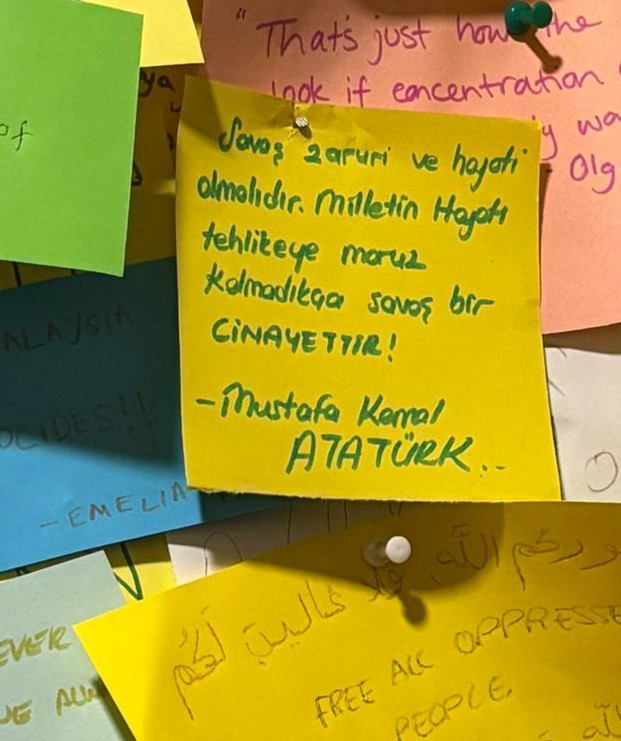 of
"That's just how the
look if concentration
ya
y wa
Olg
Savaş zaruri ve hayati
olmalıdır. Milletin Hayatı
tehlikeye maruz
kalmadıkça savaş bir
CİNAYETTİR!
-Mustafa Kemal
ATATÜRK..
ALAYSIA
OCIDES!!
-EMELIA
EVER
VE ALW
فلا غالب لكم
FREE ALL OPPRESSE
PEOPLE